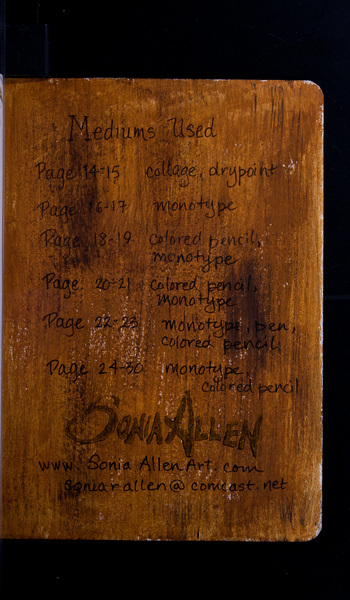 Mediums Used
Page 14-15 collage, drypoint
Page 16-17 monotype
Page 18-19 colored pencil,
monotype
Page 20-21 colored pencil,
monotype
Page 22-23 monotype, pen,
colored pencil
Page 24-30 monotype
colored pencil
SONIA ALLEN
www. Sonia AllenArt. com
soniarallen@comcast.net